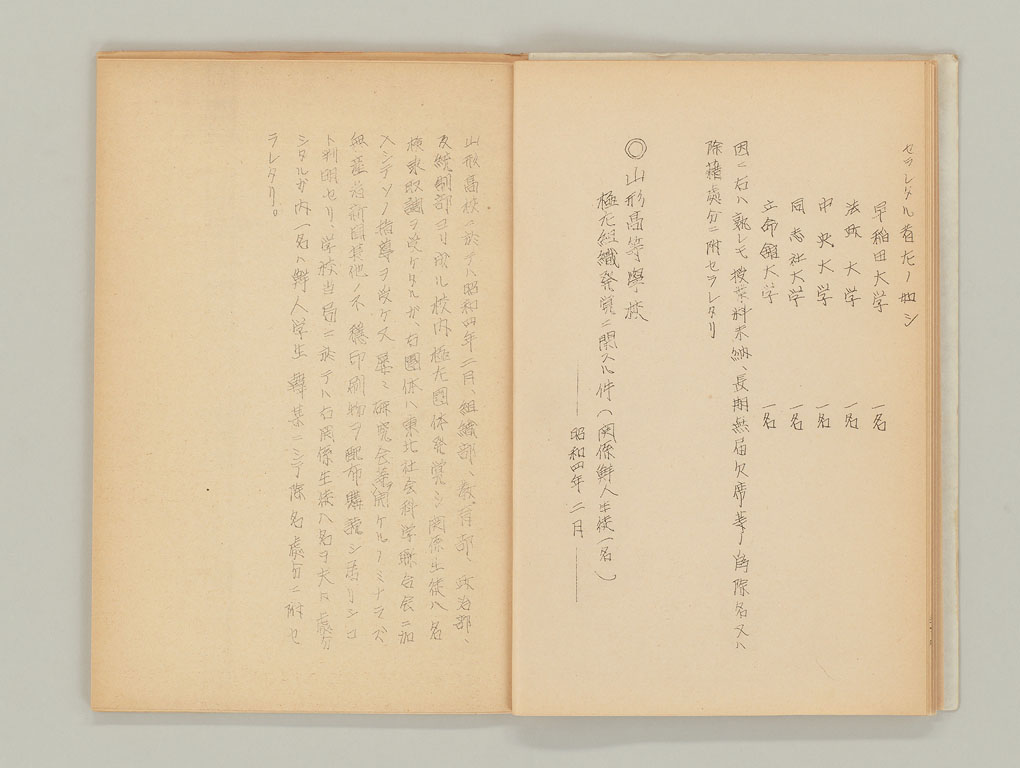 セラレタル者左ノ如シ
早稲田大学 一名
法政大学 一名
中央大学 一名
同志社大学 一名
立命館大学 一名
因ニ右ハ孰レモ授業料未納、長期無届欠席等ノ為除名又ハ
除籍處分ニ附セラレタリ
◎山形高等學校
極左組織発覚ニ関スル件(関係鮮人生徒一名)
昭和四年二月
山形高校ニ於テハ昭和四年二月、組織部、教育部、政治部、
及統制部ヨリ成ル校内極左團体発覚シ関係生徒八名
検束取調ヲ受ケタルガ、右團体ハ東北社会科学聯合会ニ加
入シテソノ指導ヲ受ケ又屡ミ研究会等開ケルノミナラズ
無産者新聞其他ノ不穏印刷物ヲ配布購読シ居リシコ
ト判明セリ、学校当局ニ於テハ右関係生徒八名ヲ夫々處分
シタルガ内一名ハ鮮人学生 某ニシテ除名處分ニ附セ
ラレタリ。